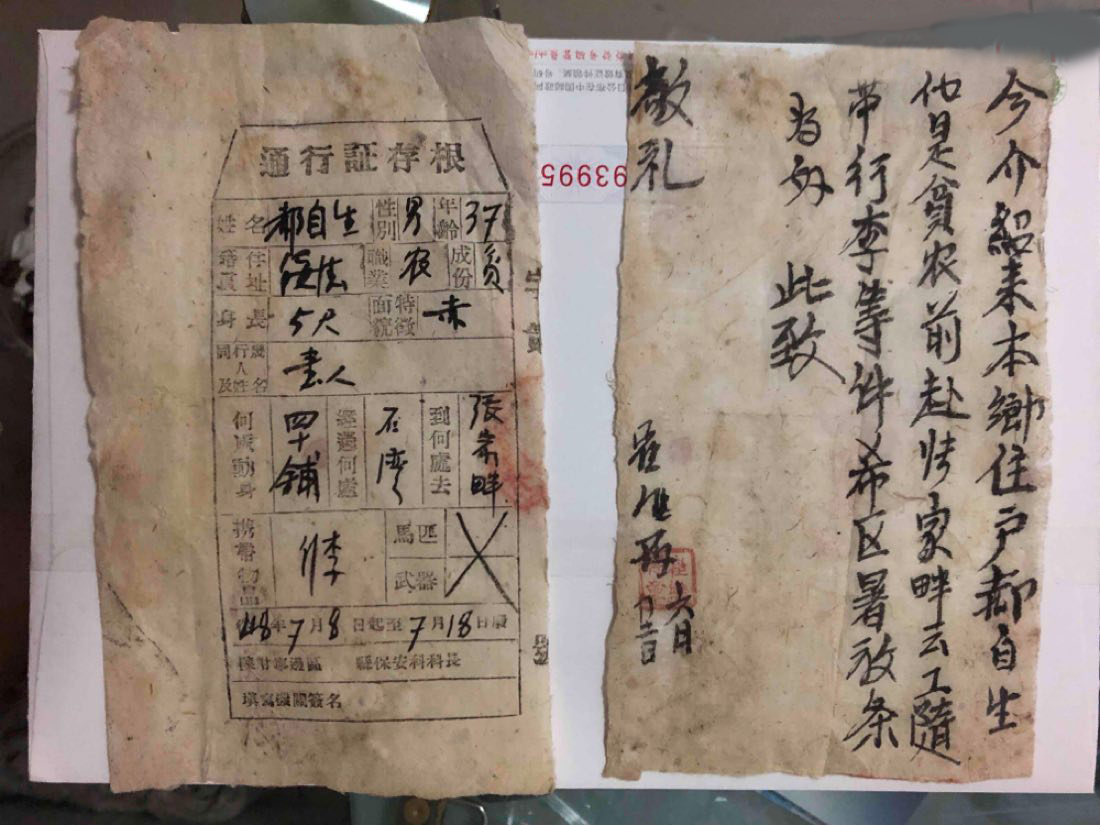 通行証存根
姓名 郝自生 性別 男 年齡 37
籍貫 住址 職業 农 成份 貧
身長 5尺 面貌特徵 赤
同行人及姓名 壹人
何處動身 四十铺 經過何處 石湾 到何處去 張家畔
携帶物 行李 馬匹 武器
48年7月8日起至7月18日
陝甘寧邊區 縣保安科科長
填寫機關簽名
字
號
今介紹来本鄉住戶郝自生
他是貧农前赴張家畔去工隨
带行李等件义希区署放条
为好 此致
敬礼
六月
93995